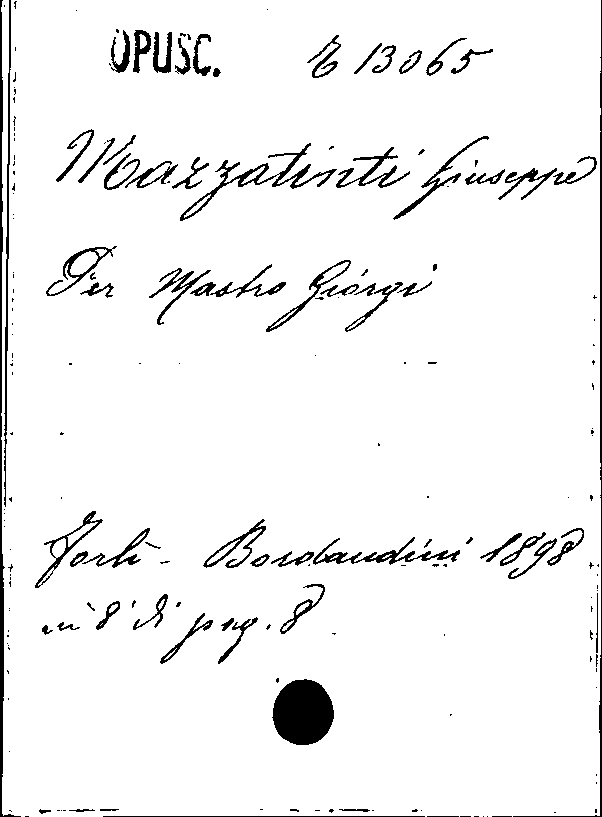 OPUSC. E 13065
Mazzatinti Giuseppe
Per Mastro Giorgi
Forlì - Bordandini 1898
in 8° di pag. 8